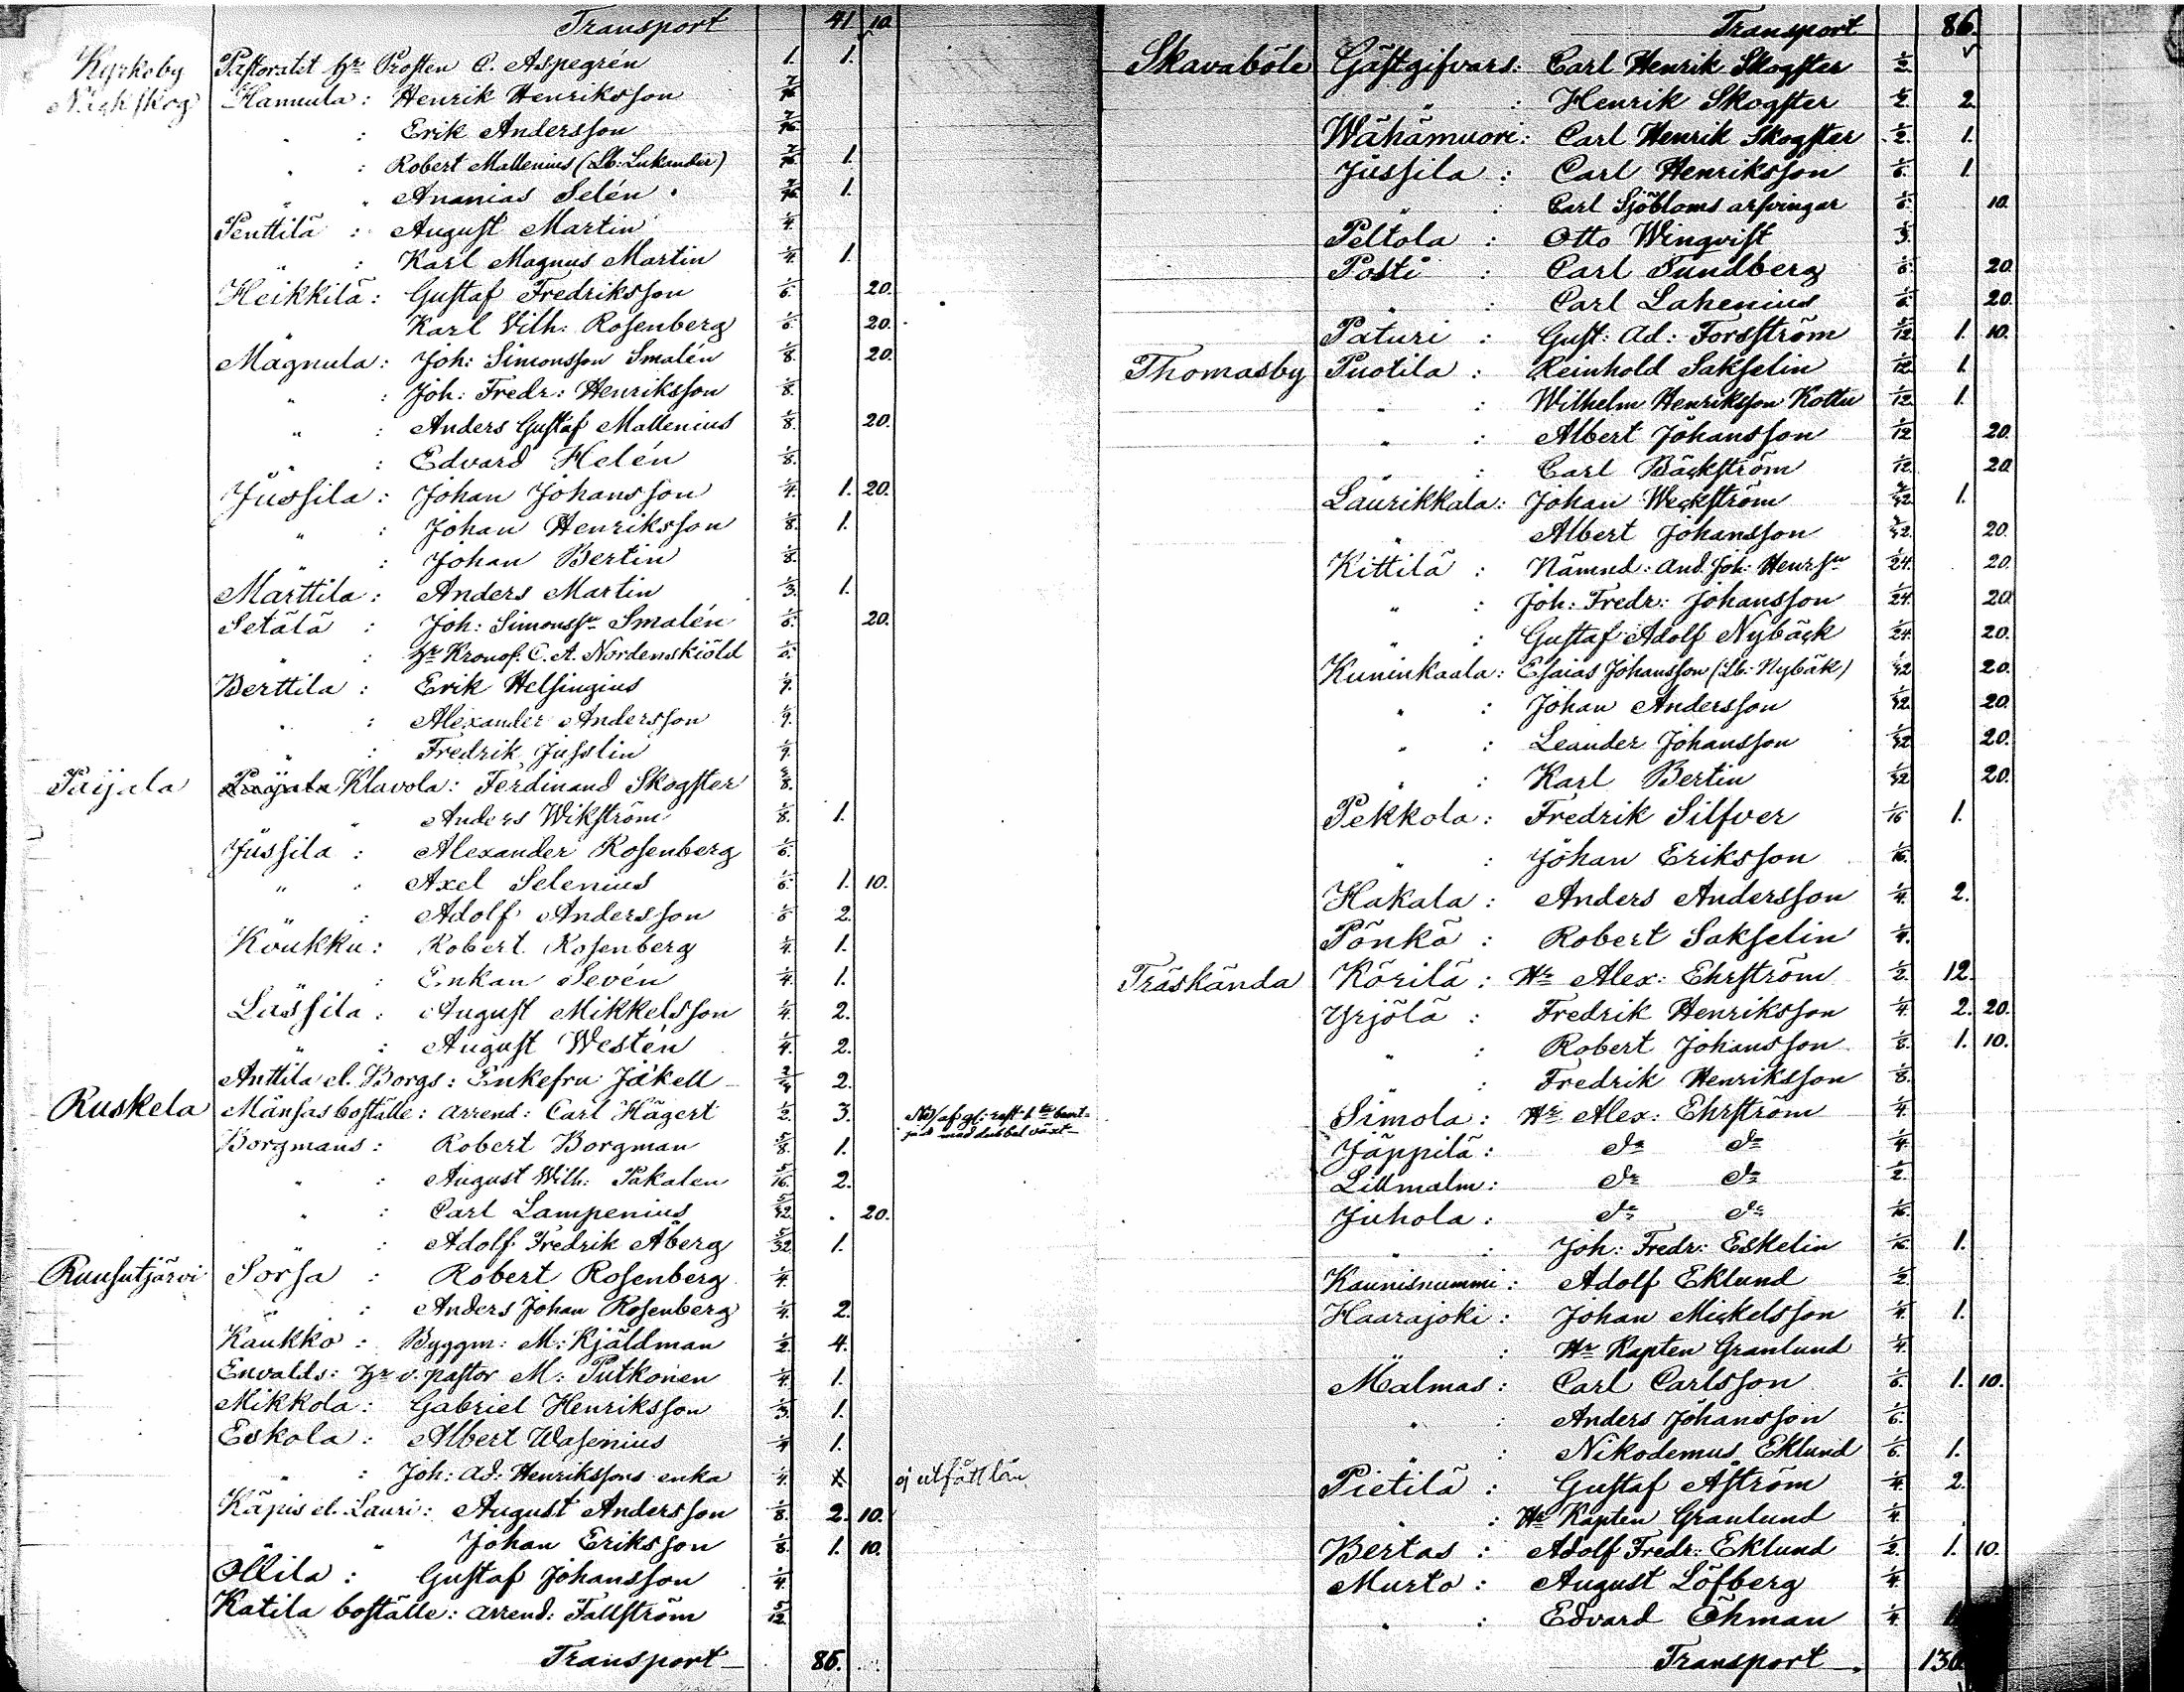 Transport 41 10.
Kyrkoby Pastoratet Hr Prosten C. Aspegrén 1. 1.
Nackskog Hannula: Henrik Henriksson 7/96
" : Erik Andersson 7/96.
" : Robert Mallenius (Lb: Lukander) 7/96 1.
" " Ananias Selén 7/96 1.
Penttilä : August Martin 1/4.
" : Karl Magnus Martin 1/4. 1.
Heikkilä: Gustaf Fredriksson 1/6. 20.
" Karl Vilh: Rosenberg 1/6. 20.
Magnula: Joh: Simonsson Smalén 1/8. 20.
" : Joh: Fredr: Henriksson 1/8.
" : Anders Gustaf Mallenius 1/8. 20.
" : Edvard Helén 1/8.
Jussila: Johan Johansson 1/4. 1. 20.
" : Johan Henriksson 1/8. 1.
" : Johan Bertin 1/8.
Marttila: Anders Martin 1/3. 1.
Setälä : Joh: Simonssn Smalén 1/6. 20.
" : Hr Kronof. C. A. Nordenskiöld 1/6.
Berttila : Erik Helsingius 1/9.
" : Alexander Andersson 1/9.
" : Fredrik Jusslin 1/9.
Paijala Paijala Klavola: Ferdinand Skogster 3/8.
" Anders Wikström 1/8. 1.
Jussila : Alexander Rosenberg 1/6.
" : Axel Selenius 1/6. 1. 10.
" : Adolf Andersson 1/6 2.
Koukku: Robert Rosenberg 1/4. 1.
" : Enkan Sevén 1/4. 1.
Lassila : August Mikkelsson 1/4. 2.
" : August Westén 1/4. 2.
Anttila el. Borgs: Enkefru Jäkell 2/4 2.
Ruskela Månsas boställe: arrend: Carl Hägert 1/2. 3.
Borgmans: Robert Borgman 5/8. 1.
" : August Wilh: Pakalen 5/16. 2.
" : Carl Lampenius 5/32. . 20.
" : Adolf Fredrik Åberg 5/32 1.
Ruusutjärvi Sorsa : Robert Rosenberg 1/4.
" : Anders Johan Rosenberg 1/4. 2.
Kaukko : Byggm: M: Kjäldman 1/2. 4.
Envalds: Hr v. pastor M: Putkonen 1/4. 1.
Mikkola: Gabriel Henriksson 1/3. 1.
Eskola : Albert Wasenius 1/4 1.
" : Joh: Ad: Henrikssons enka 1/4. ej utfått lån
Käpis el. Lauri: August Andersson 1/8. 2. 10.
" Johan Eriksson 1/8. 1. 10.
Ollila : Gustaf Johansson 1/4.
Katila boställe: arrend: Fallström 5/12.
Transport 86.
Transport 86.
Skavaböle Gästgifvars: Carl Henrik Skogster 1/2.
" : Henrik Skogster 1/2. 2.
Wähämuori: Carl Henrik Skogster 1/2. 1.
Jussila : Carl Henriksson 1/6. 1.
" : Carl Sjöbloms arfvingar 1/6. 10.
Peltola : Otto Wingvist 1/3.
Posti : Carl Sundberg 1/6. 20.
" : Carl Lahenius 1/6. 20.
Paturi : Gust: Ad: Forsström 5/12. 1. 10.
Thomasby Puotila : Reinhold Sakselin 1/12. 1.
" : Wilhelm Henriksson Kottu 1/12 1.
" : Albert Johansson 1/12 20.
" : Carl Bäckström 1/12. 20.
Laurikkala: Johan Weckström 1.
" Albert Johansson 20.
Kittilä : Nämnd: And. Joh: Henrsn 1/24. 20.
" : Joh: Fredr: Johansson 1/24 20.
" : Gustaf Adolf Nybäck 1/24. 20.
Kuninkaala: Esaias Johansson (Lb: Nybäk) 1/32 20.
" : Johan Andersson 1/32 20.
" : Leander Johansson 1/32 20.
" : Karl Bertin 1/32 20.
Pekkola: Fredrik Silfver 1/16 1.
" : Johan Eriksson 1/16.
Hakala : Anders Andersson 1/4. 2.
Pönkö : Robert Sakselin 1/4.
Träskända Körilä : Hr Alex: Ehrström 1/2. 12.
Yrjölä : Fredrik Henriksson 1/4. 2. 20.
" : Robert Johansson 1/8. 1. 10.
" : Fredrik Henriksson 1/8.
Simola : Hr Alex: Ehrström 1/4.
Jäppilä : do do 1/4.
Lillmalm : do do 1/2.
Juhola : do do 1/16.
" : Joh: Fredr: Eskelin 1/16. 1.
Kaunisnummi : Adolf Eklund 1/2.
Haarajoki : Johan Mickelsson 1/4. 1.
" : Hr Kapten Granlund 1/4.
Malmas : Carl Carlsson 1/6. 1. 10.
" : Anders Johansson 1/6.
" : Nikodemus Eklund 1/6. 1.
Pietilä : Gustaf Åström 1/4. 2.
" : Hr Kapten Granlund 1/4
Bertas : Adolf Fredr: Eklund 1/2. 1. 10.
Murto : August Löfberg 1/4.
" : Edvard Öhman 1/4.
Transport